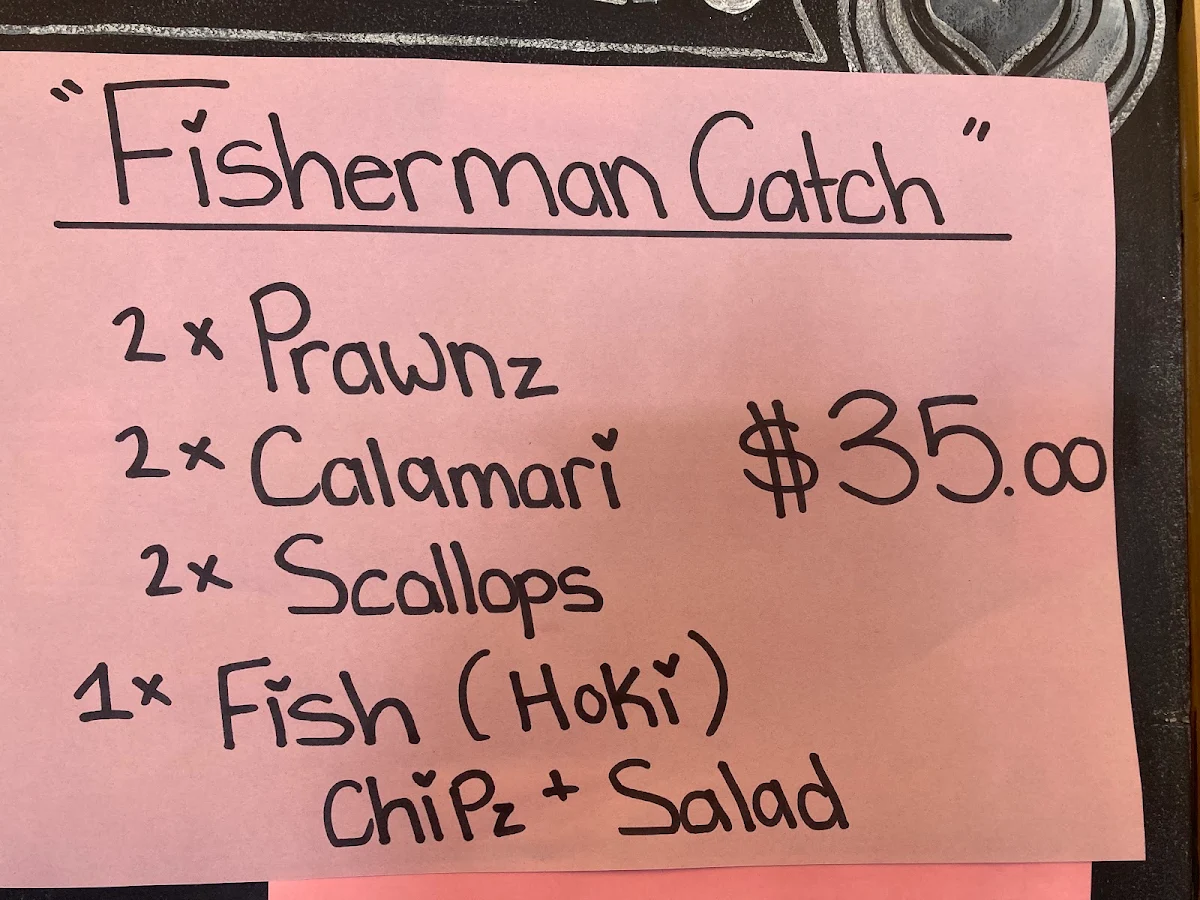 "Fisherman Catch"
2x Prawnz
2x Calamari
$35.00
2x Scallops
1x Fish (Hoki)
Chipz + Salad